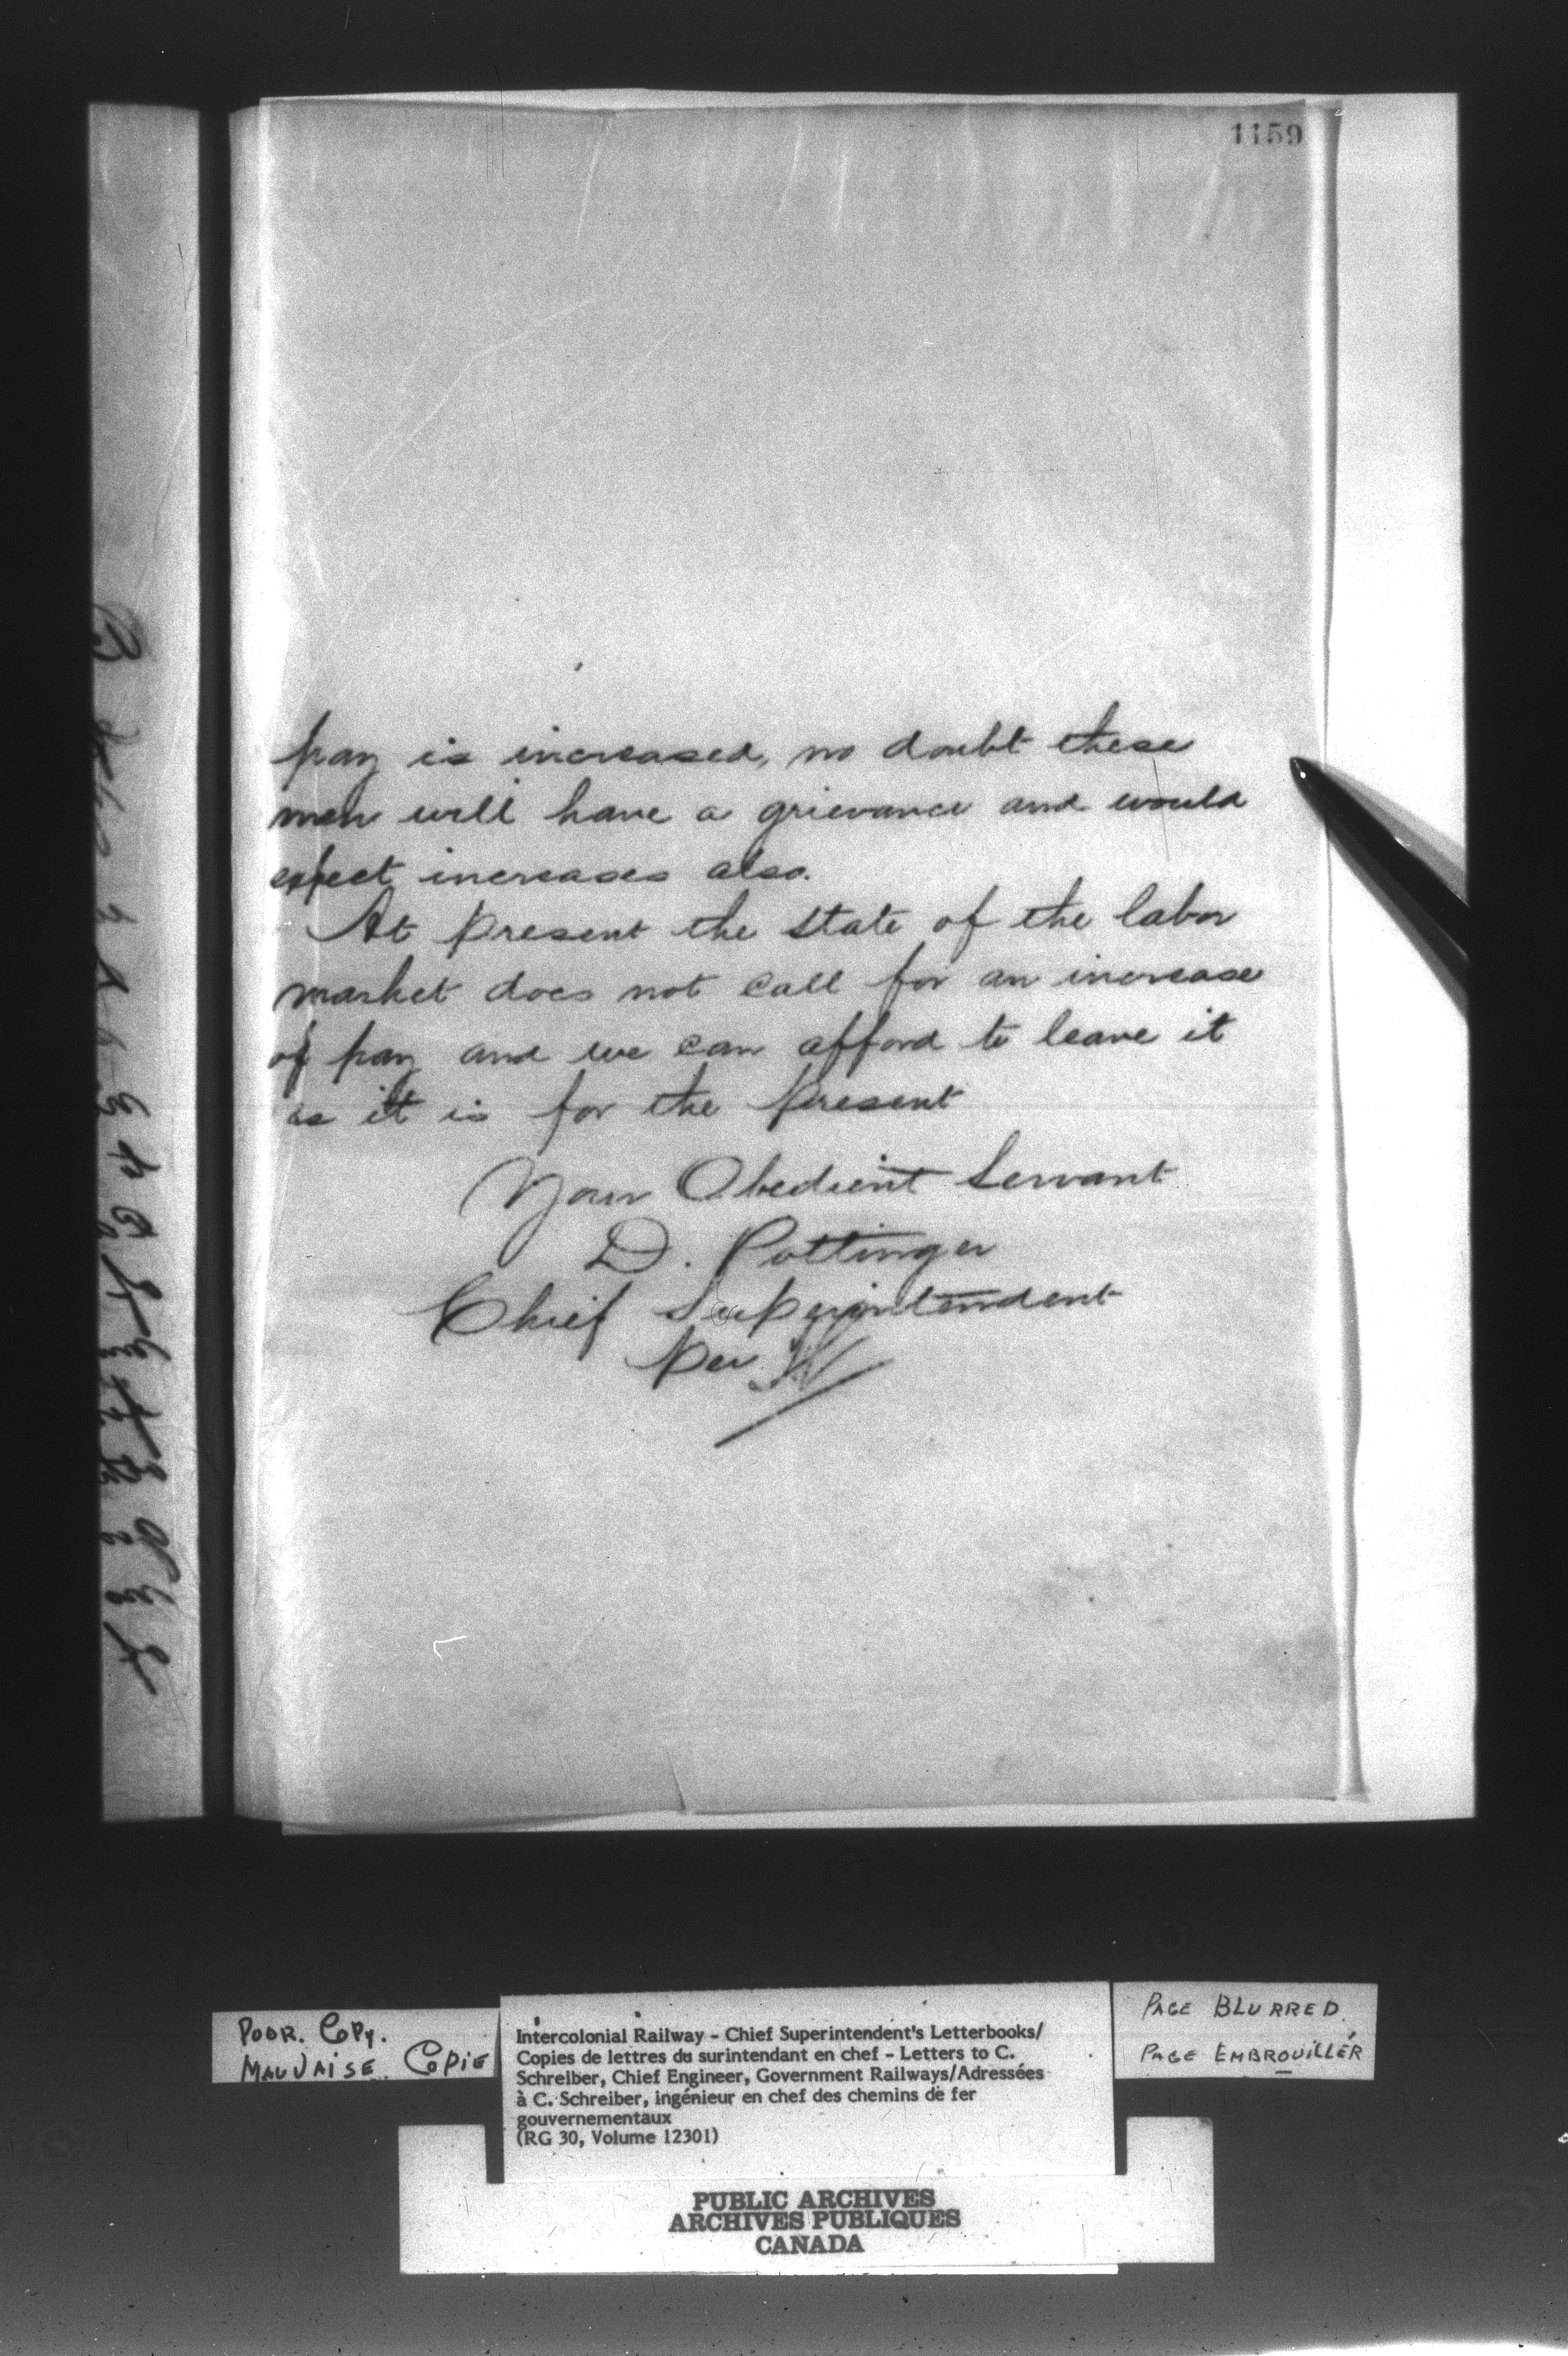 1159
pay is increased, no doubt these
men will have a grievance and would
expect increases also.
At present the state of the labor
market does not call for an increase
of pay and we can afford to leave it
as it is for the present
Your Obedient Servant
D. Pottinger
Chief Superintendent
Per
POOR. COPY.
MAUVAISE COPIE
Intercolonial Railway - Chief Superintendent's Letterbooks/
Copies de lettres du surintendant en chef - Letters to C.
Schreiber, Chief Engineer, Government Railways/Adressées
à C. Schreiber, ingénieur en chef des chemins de fer
gouvernementaux
(RG 30, Volume 12301)
PAGE BLURRED.
PAGE EMBROUILLÉR
PUBLIC ARCHIVES
ARCHIVES PUBLIQUES
CANADA